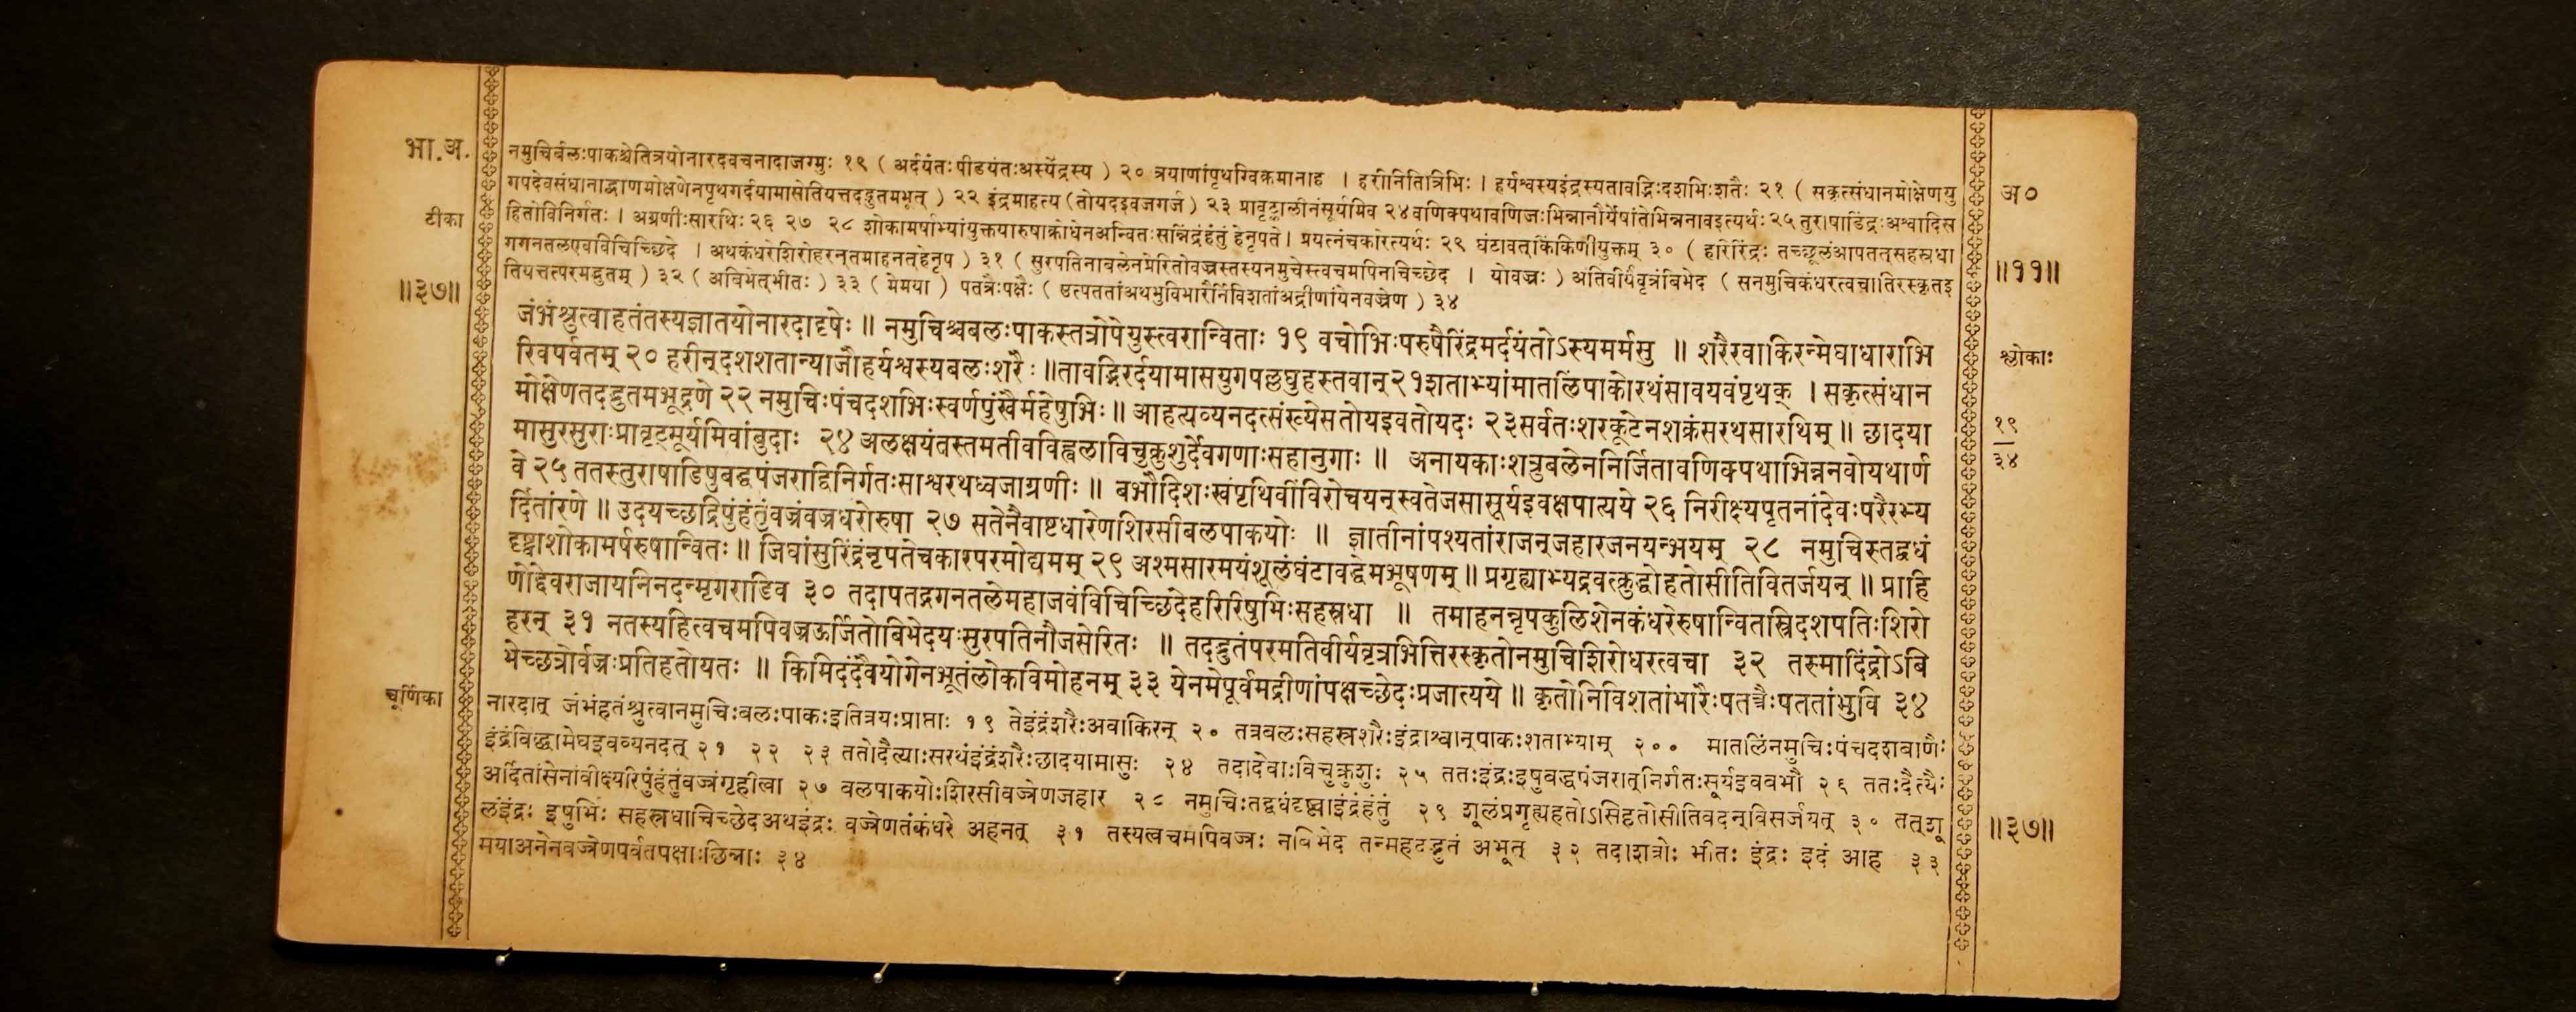 भा.अ.
टीका
॥३७॥
नमुचिर्बलःपाकश्चेतित्रयोनारदवचनादाजग्मुः १९ ( अर्दयंतःपीडयंतःअस्येंद्रस्य ) २० त्रयाणांपृथग्विक्रमानाह । हरीनितित्रिभिः । हर्यश्वस्यइंद्रस्यतावद्भिःदशभिःशतैः २१ ( सकृत्संधानमोक्षेणयु
गपदेवसंधानाद्बाणमोक्षणेनपृथगर्दयामासेतियत्तदद्भुतमभूत् ) २२ इंद्रमाहत्य (तोयदइवजगर्ज ) २३ प्रावृट्कालीनंसूर्यमिव २४ वणिक्पथावणिजःभिन्नानौर्येषांतेभिन्ननावइत्यर्थः २५ तुराषाडिंद्रःअश्वादिस
हितोविनिर्गतः । अग्रणीःसारथिः २६ २७ २८ शोकामर्षाभ्यांयुक्तयारुषाक्रोधेनअन्वितःसन्निंद्रंहंतुं हेनृपते । प्रयत्नंचकारेत्यर्थः २९ घंटावत्किंकिणीयुक्तम् ३० ( हरिरिंद्रः तच्छूलंआपतत्सहस्रधा
गगनतलएवविचिच्छिदे । अथकंधरेशिरोहरन्तमाहनत्हेनृप ) ३१ ( सुरपतिनाबलेनप्रेरितोवज्रस्तस्यनमुचेस्त्वचमपिनचिच्छेद । योवज्रः ) अतिवीर्यवृत्रंबिभेद ( सनमुचिकंधरत्वचातिरस्कृतइ
तियत्तत्परमद्भुतम् ) ३२ ( अबिभेत्भीतः ) ३३ ( मेमया ) पतत्रैःपक्षैः ( उत्पततांअथभुविभारैर्निविशतांअद्रीणांयेनवज्रेण ) ३४
जंभंश्रुत्वाहतंतस्यज्ञातयोनारदादृषेः ॥ नमुचिश्चबलःपाकस्तत्रोपेयुस्त्वरान्विताः १९ वचोभिःपरुषैरिंद्रमर्दयंतोऽस्यमर्मसु ॥ शरैरवाकिरन्मेघाधाराभि
रिवपर्वतम् २० हरीन्दशशतान्याजौहर्यश्वस्यबलःशरैः ॥तावद्भिरर्दयामासयुगपल्लघुहस्तवान् २१शताभ्यांमातलिंपाकोरथंसावयवंपृथक् । सकृत्संधान
मोक्षेणतदद्भुतमभूद्रणे २२ नमुचिःपंचदशभिःस्वर्णपुंखैर्महेषुभिः ॥ आहत्यव्यनदत्संख्येसतोयइवतोयदः २३सर्वतःशरकूटेनशक्रंसरथसारथिम् ॥ छादया
मासुरसुराःप्रावृट्सूर्यमिवांबुदाः २४ अलक्षयंतस्तमतीवविह्वलाविचुक्रुशुर्देवगणाःसहानुगाः ॥ अनायकाःशत्रुबलेननिर्जितावणिक्पथाभिन्ननवोयथार्ण
वे २५ ततस्तुराषाडिषुबद्धपंजराद्विनिर्गतःसाश्वरथध्वजाग्रणीः ॥ बभौदिशःखंपृथिवींविरोचयन्स्वतेजसासूर्यइवक्षपात्यये २६ निरीक्ष्यपृतनांदेवःपरैरभ्य
र्दितांरणे ॥ उदयच्छद्रिपुंहंतुंवज्रंवज्रधरोरुषा २७ सतेनैवाष्टधारेणशिरसीबलपाकयोः ॥ ज्ञातीनांपश्यतांराजन्जहारजनयन्भयम् २८ नमुचिस्तद्वधं
दृष्ट्वाशोकामर्षरुषान्वितः ॥ जिघांसुरिंद्रंनृपतेचकारपरमोद्यमम् २९ अश्मसारमयंशूलंघंटावद्धेमभूषणम् ॥ प्रगृह्याभ्यद्रवत्क्रुद्धोहतोसीतिवितर्जयन् ॥ प्राहि
णोद्देवराजायनिनदन्मृगराडिव ३० तदापतद्गगनतलेमहाजवंविचिच्छिदेहरिरिषुभिःसहस्रधा ॥ तमाहनन्नृपकुलिशेनकंधरेरुषान्वितस्त्रिदशपतिःशिरो
हरन् ३१ नतस्यहित्वचमपिवज्रऊर्जितोबिभेदयःसुरपतिनौजसेरितः ॥ तदद्भुतंपरमतिवीर्यवृत्रभित्तिरस्कृतोनमुचिशिरोधरत्वचा ३२ तस्मादिंद्रोऽबि
भेच्छत्रोर्वज्रःप्रतिहतोयतः ॥ किमिदंदैवयोगेनभूतंलोकविमोहनम् ३३ येनमेपूर्वमद्रीणांपक्षच्छेदःप्रजात्यये ॥ कृतोनिविशतांभारैःपतत्रैःपततांभुवि ३४
चूर्णिका
नारदात् जंभंहतंश्रुत्वानमुचिःबलःपाकःइतित्रयःप्राप्ताः १९ तेइंद्रंशरैःअवाकिरन् २० तत्रबलःसहस्रशरैःइंद्राश्वान्पाकःशताभ्याम् २०० मातलिंनमुचिःपंचदशबाणैः
इंद्रंविद्धामेघइवव्यनदत् २१ २२ २३ ततोदैत्याःसरथंइंद्रंशरैःछादयामासुः २४ तदादेवाःविचुक्रुशुः २५ ततःइंद्रःइषुबद्धपंजरात्निर्गतःसूर्यइवबभौ २६ ततःदैत्यैः
अर्दितांसेनांवीक्ष्यरिपुंहंतुंवज्रंगृहीत्वा २७ बलपाकयोःशिरसीवज्रेणजहार २८ नमुचिःतद्वधंदृष्ट्वाइंद्रंहंतुं २९ शूलंप्रगृह्यहतोऽसिहतोसीतिवदन्विसर्जयत् ३० तत्शू
लंइंद्रः इषुभिः सहस्रधाचिच्छेदअथइंद्रः वज्रेणतंकंधरे अहनत् ३१ तस्यत्वचमपिवज्रः नबिभेद तन्महदद्भुतं अभूत् ३२ तदाशत्रोः भीतः इंद्रः इदं आह ३३
मयाअनेनवज्रेणपर्वतपक्षाःछिन्नाः ३४
अ०
॥११॥
श्लोकाः
१९
३४
॥३७॥